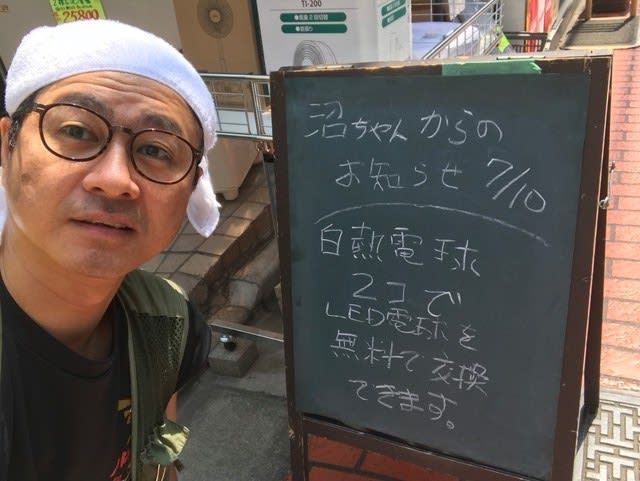 25800
TI-200
沼ちゃんからの
お知らせ 7/10
白熱電球
2コで
LED電球を
無料で交換
できます。